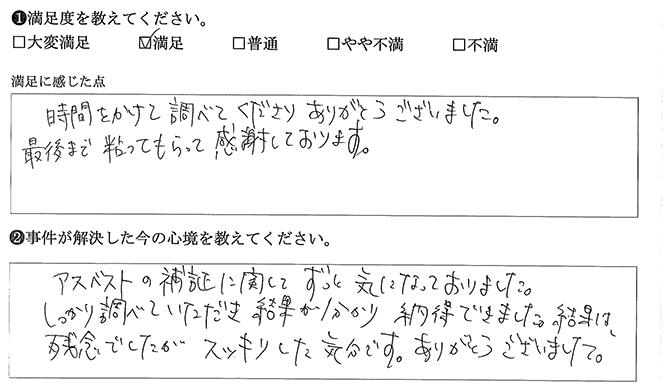 ❶満足度を教えてください。
□大変満足 ☑満足 □普通 □やや不満 □不満
満足に感じた点
時間をかけて調べてくださり ありがとうございました。
最後まで 粘ってもらって 感謝しております。
❷事件が解決した今の心境を教えてください。
アスベストの補証に関して ずっと 気になっておりました。
しっかり調べていただき 結果が分かり 納得できました。結果は、
残念でしたが スッキリした気分です。ありがとうございました。